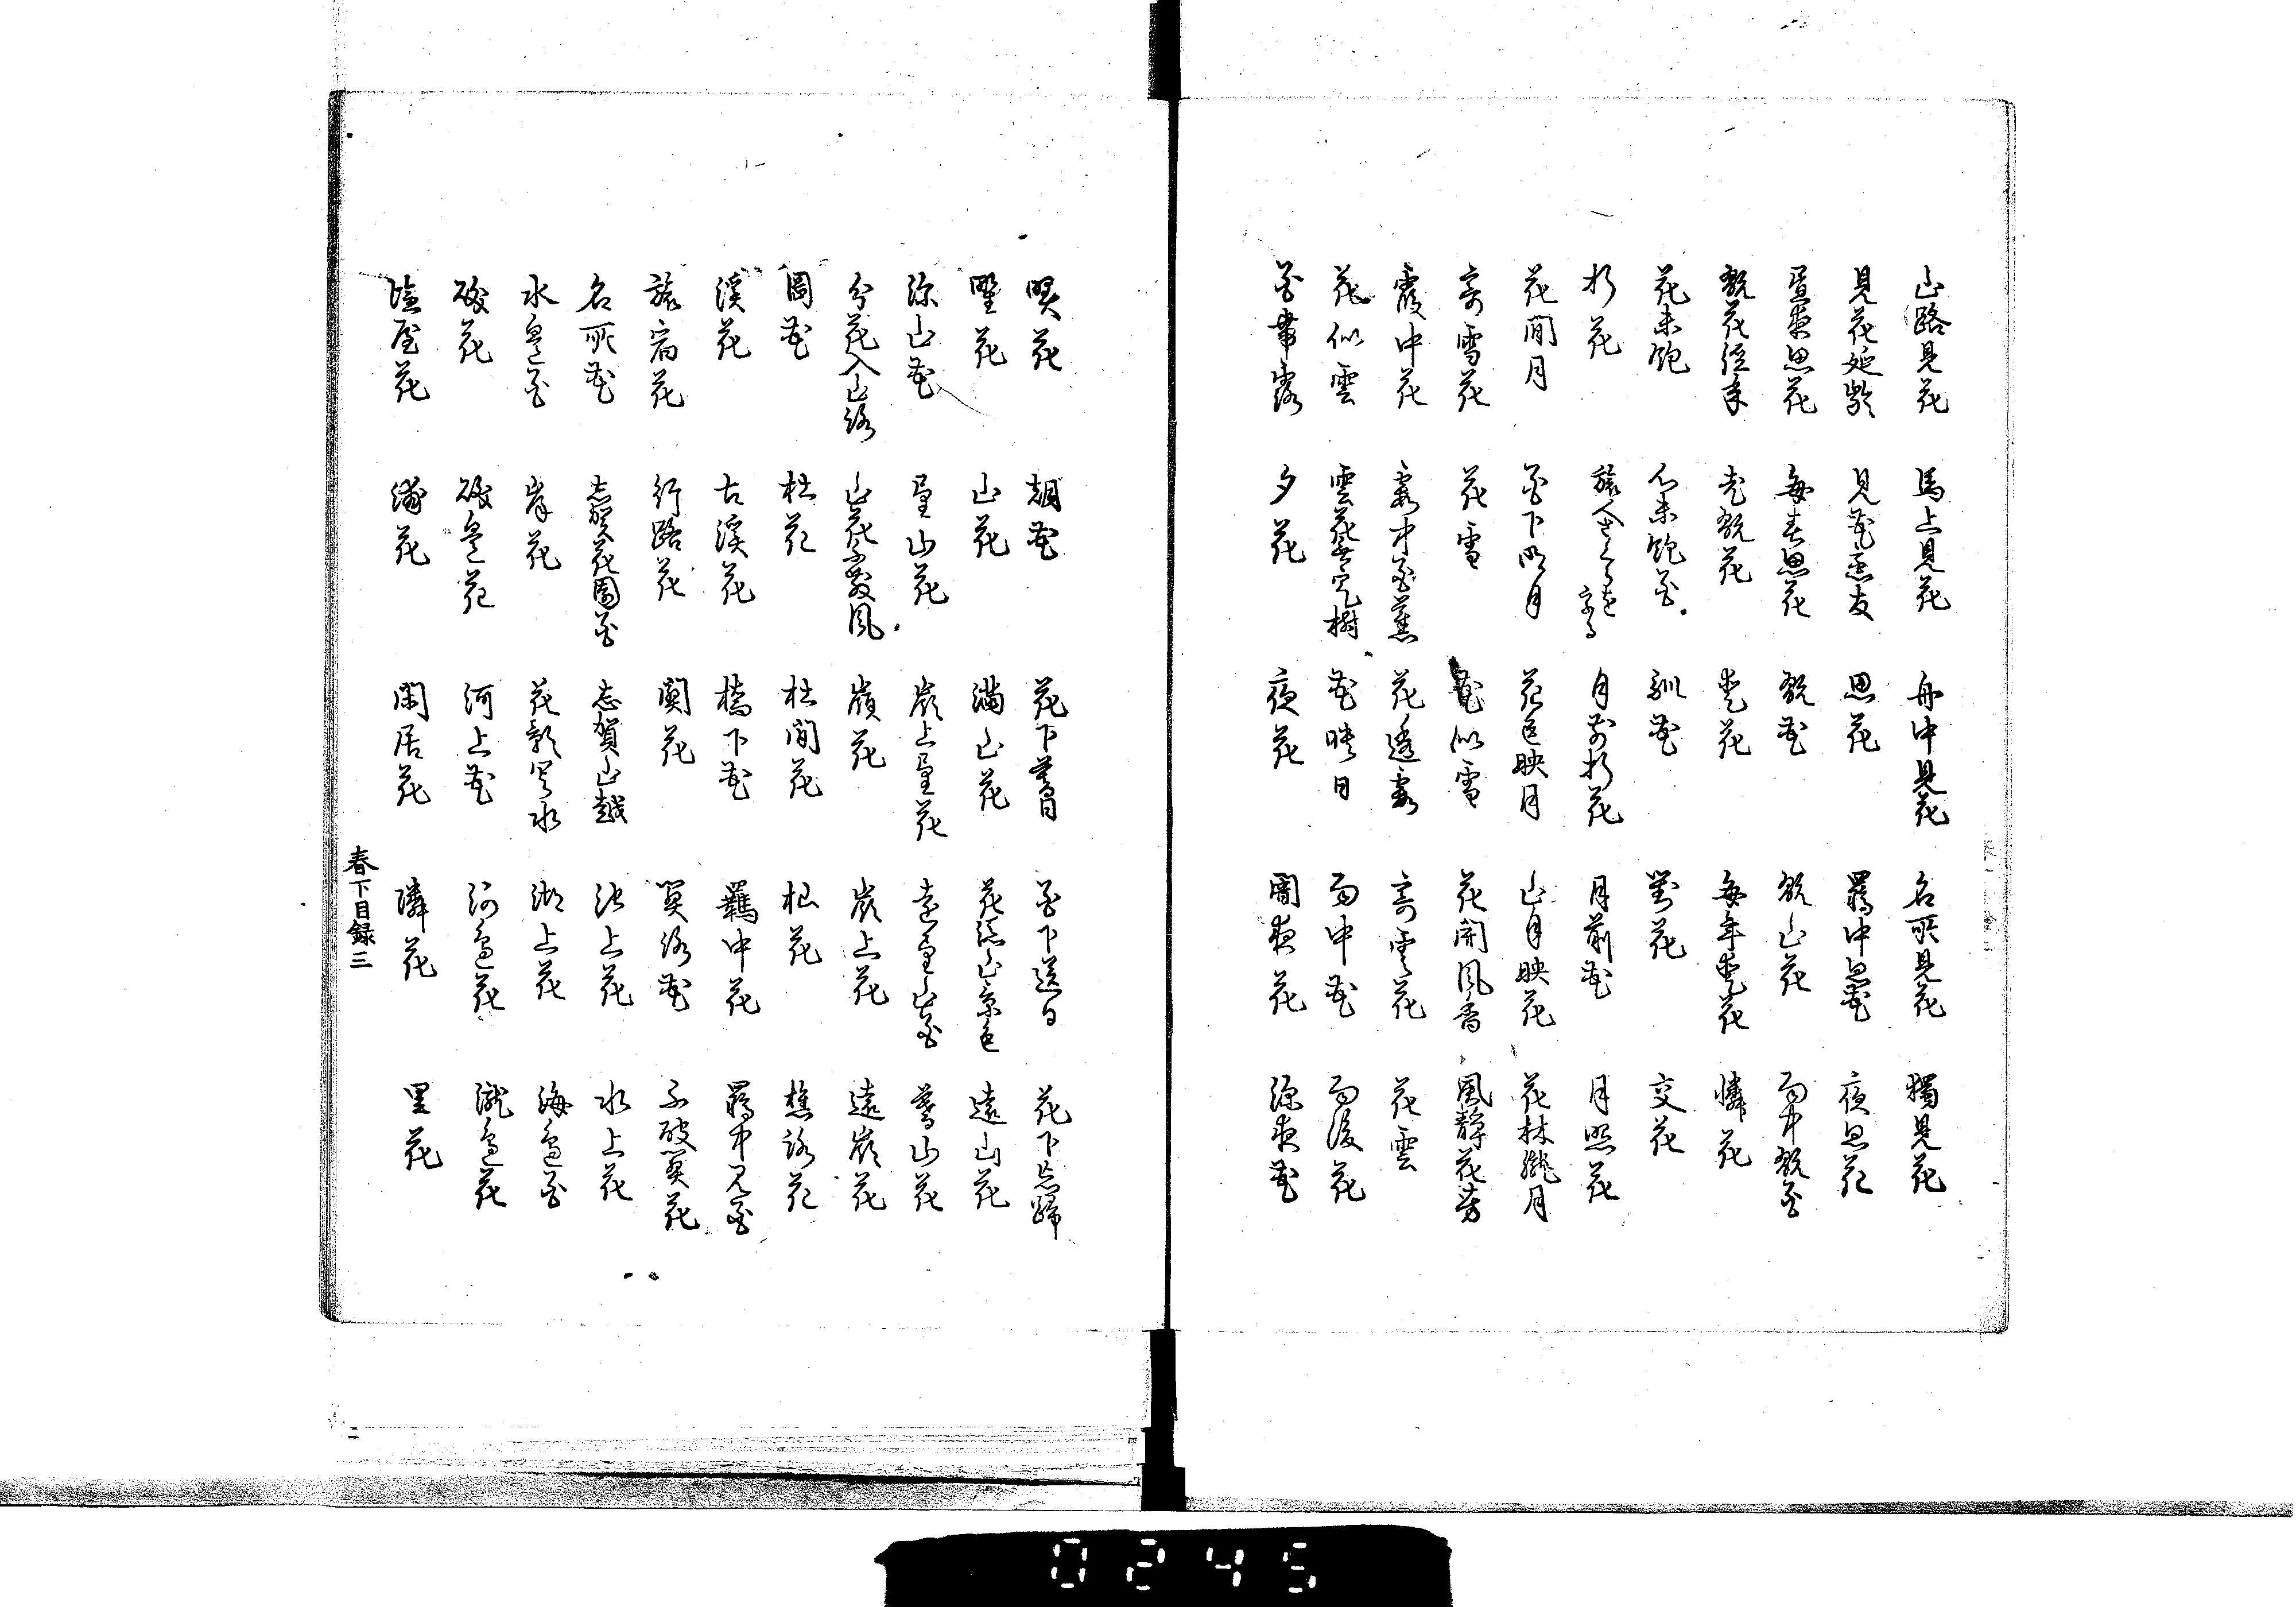 山路見花 馬上見花 舟中見花 名所見花 独見花
見花延齢 見花恋友 思花 羇中思花 夜思花
昼夜思花 毎春思花 翫花 翫山花 雨中翫花
翫花経年 老翫花 愛花 毎年愛花 憐花
花未飽 心未飽花 馴花 対花 交花
折花 旅人さくらを折る 月前折花 月前花 月照花
花間月 花下明月 花色映月 山月映花 花林朧月
寄雪花 花雪 花似雪 花開風香 風静花芳
霞中花 霞中花薫 花透霞 寄雲花 花雲
花似雲 雲花無定樹 花映日 雨中花 雨後花
花帯露 夕花 夜花 闇夜花 深夜花
暁花 朝花 花下暮日 花下送日 花下忘帰
野花 山花 満山花 花添山景色 遠山花
深山花 尋山花 嶺上尋花 遠尋山花 暮山花
分花入山路 山花不厭風 嶺花 嶺上花 遠嶺花
岡花 杜花 杜間花 杣花 樵路花
渓花 古渓花 橋下花 羈中花 羇中見花
旅宿花 行路花 関花 関路花 不破関花
名所花 志賀花園花 志賀山越 池上花 水上花
水辺花 岸花 花影写水 湖上花 海辺花
磯花 磯辺花 河上花 河辺花 滝辺花
塩屋花 浦花 閑居花 隣花 里花
春下目録三
0245